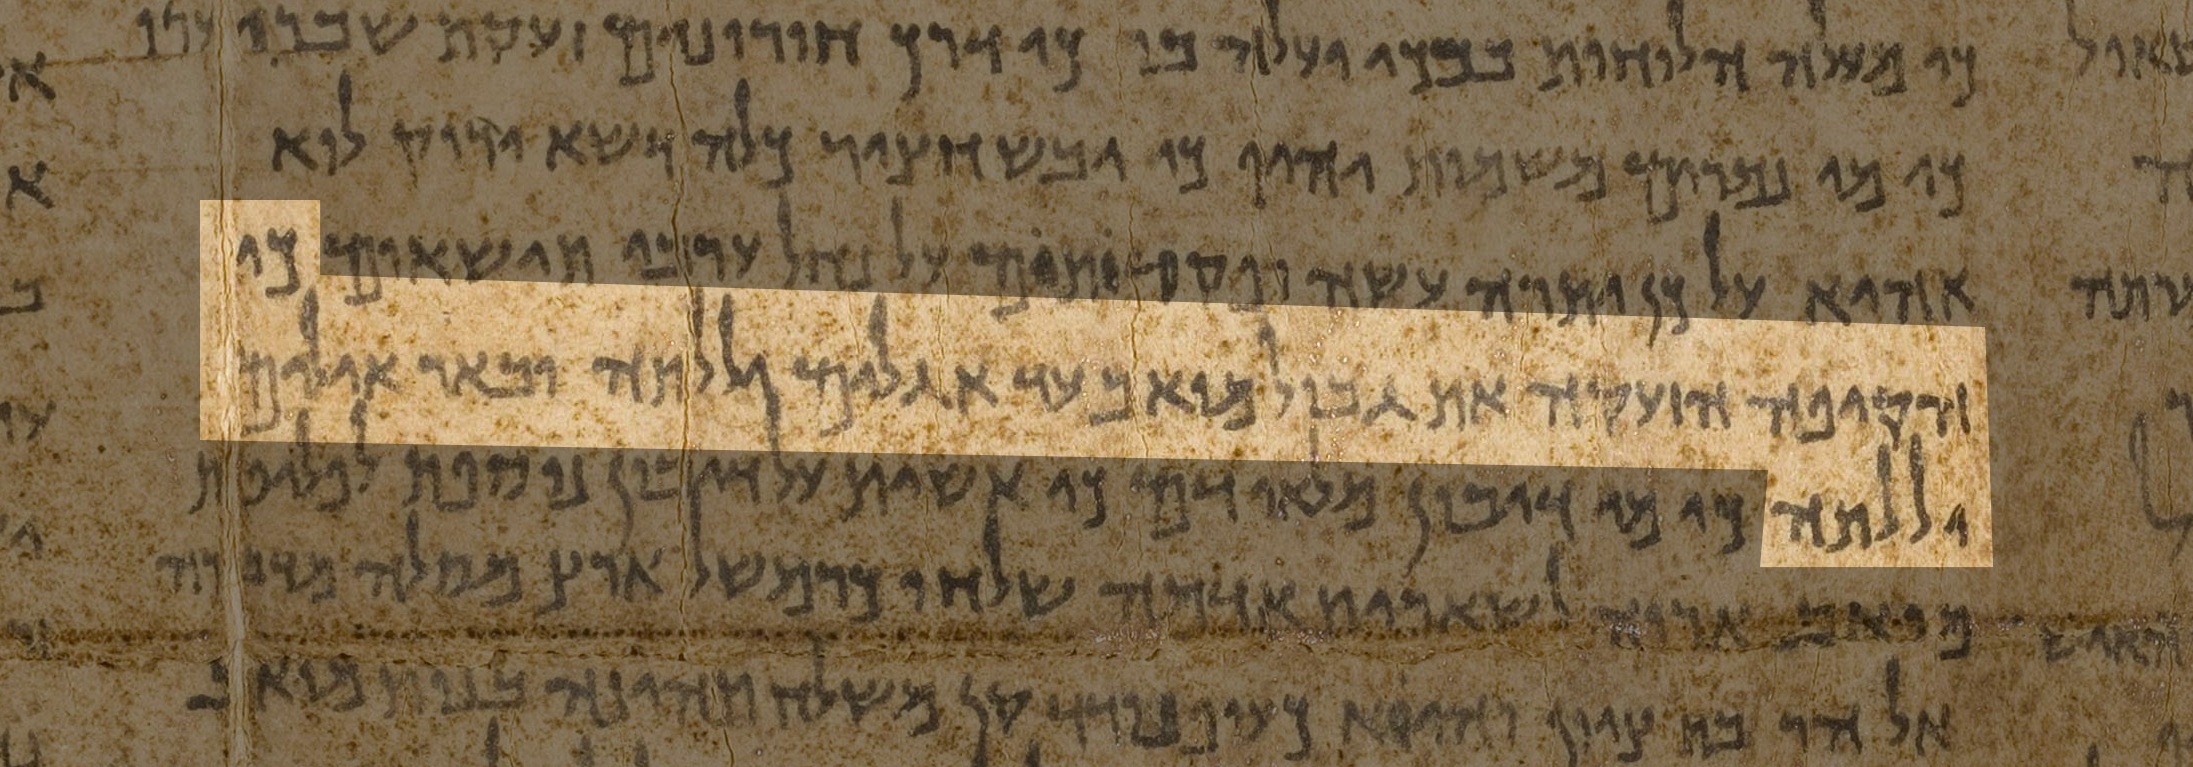 כי מעלה הלוחית בבכי ועלה בו כי דרך חורונים זעקת שבר יערו
כי מי נמרים משמות יהיו כי יבש חציר כלה דשא וירוק לוא
על כן יתרה עשה ופקדתים על נחל ערבי תישאום כי
הקיפה הזעקה את גבול מואב עד אגלים יללתה ובאר אילים
יללתה כי מי דיבון מלאו דם כי אשית על דיבון נוספות לפליטת
מואב אריה לשארית אדמה שלחו כר משל ארץ מסלה מדברה
אל הר בת ציון והיא כעוף נודד קן משלח תהיינה בנות מואב